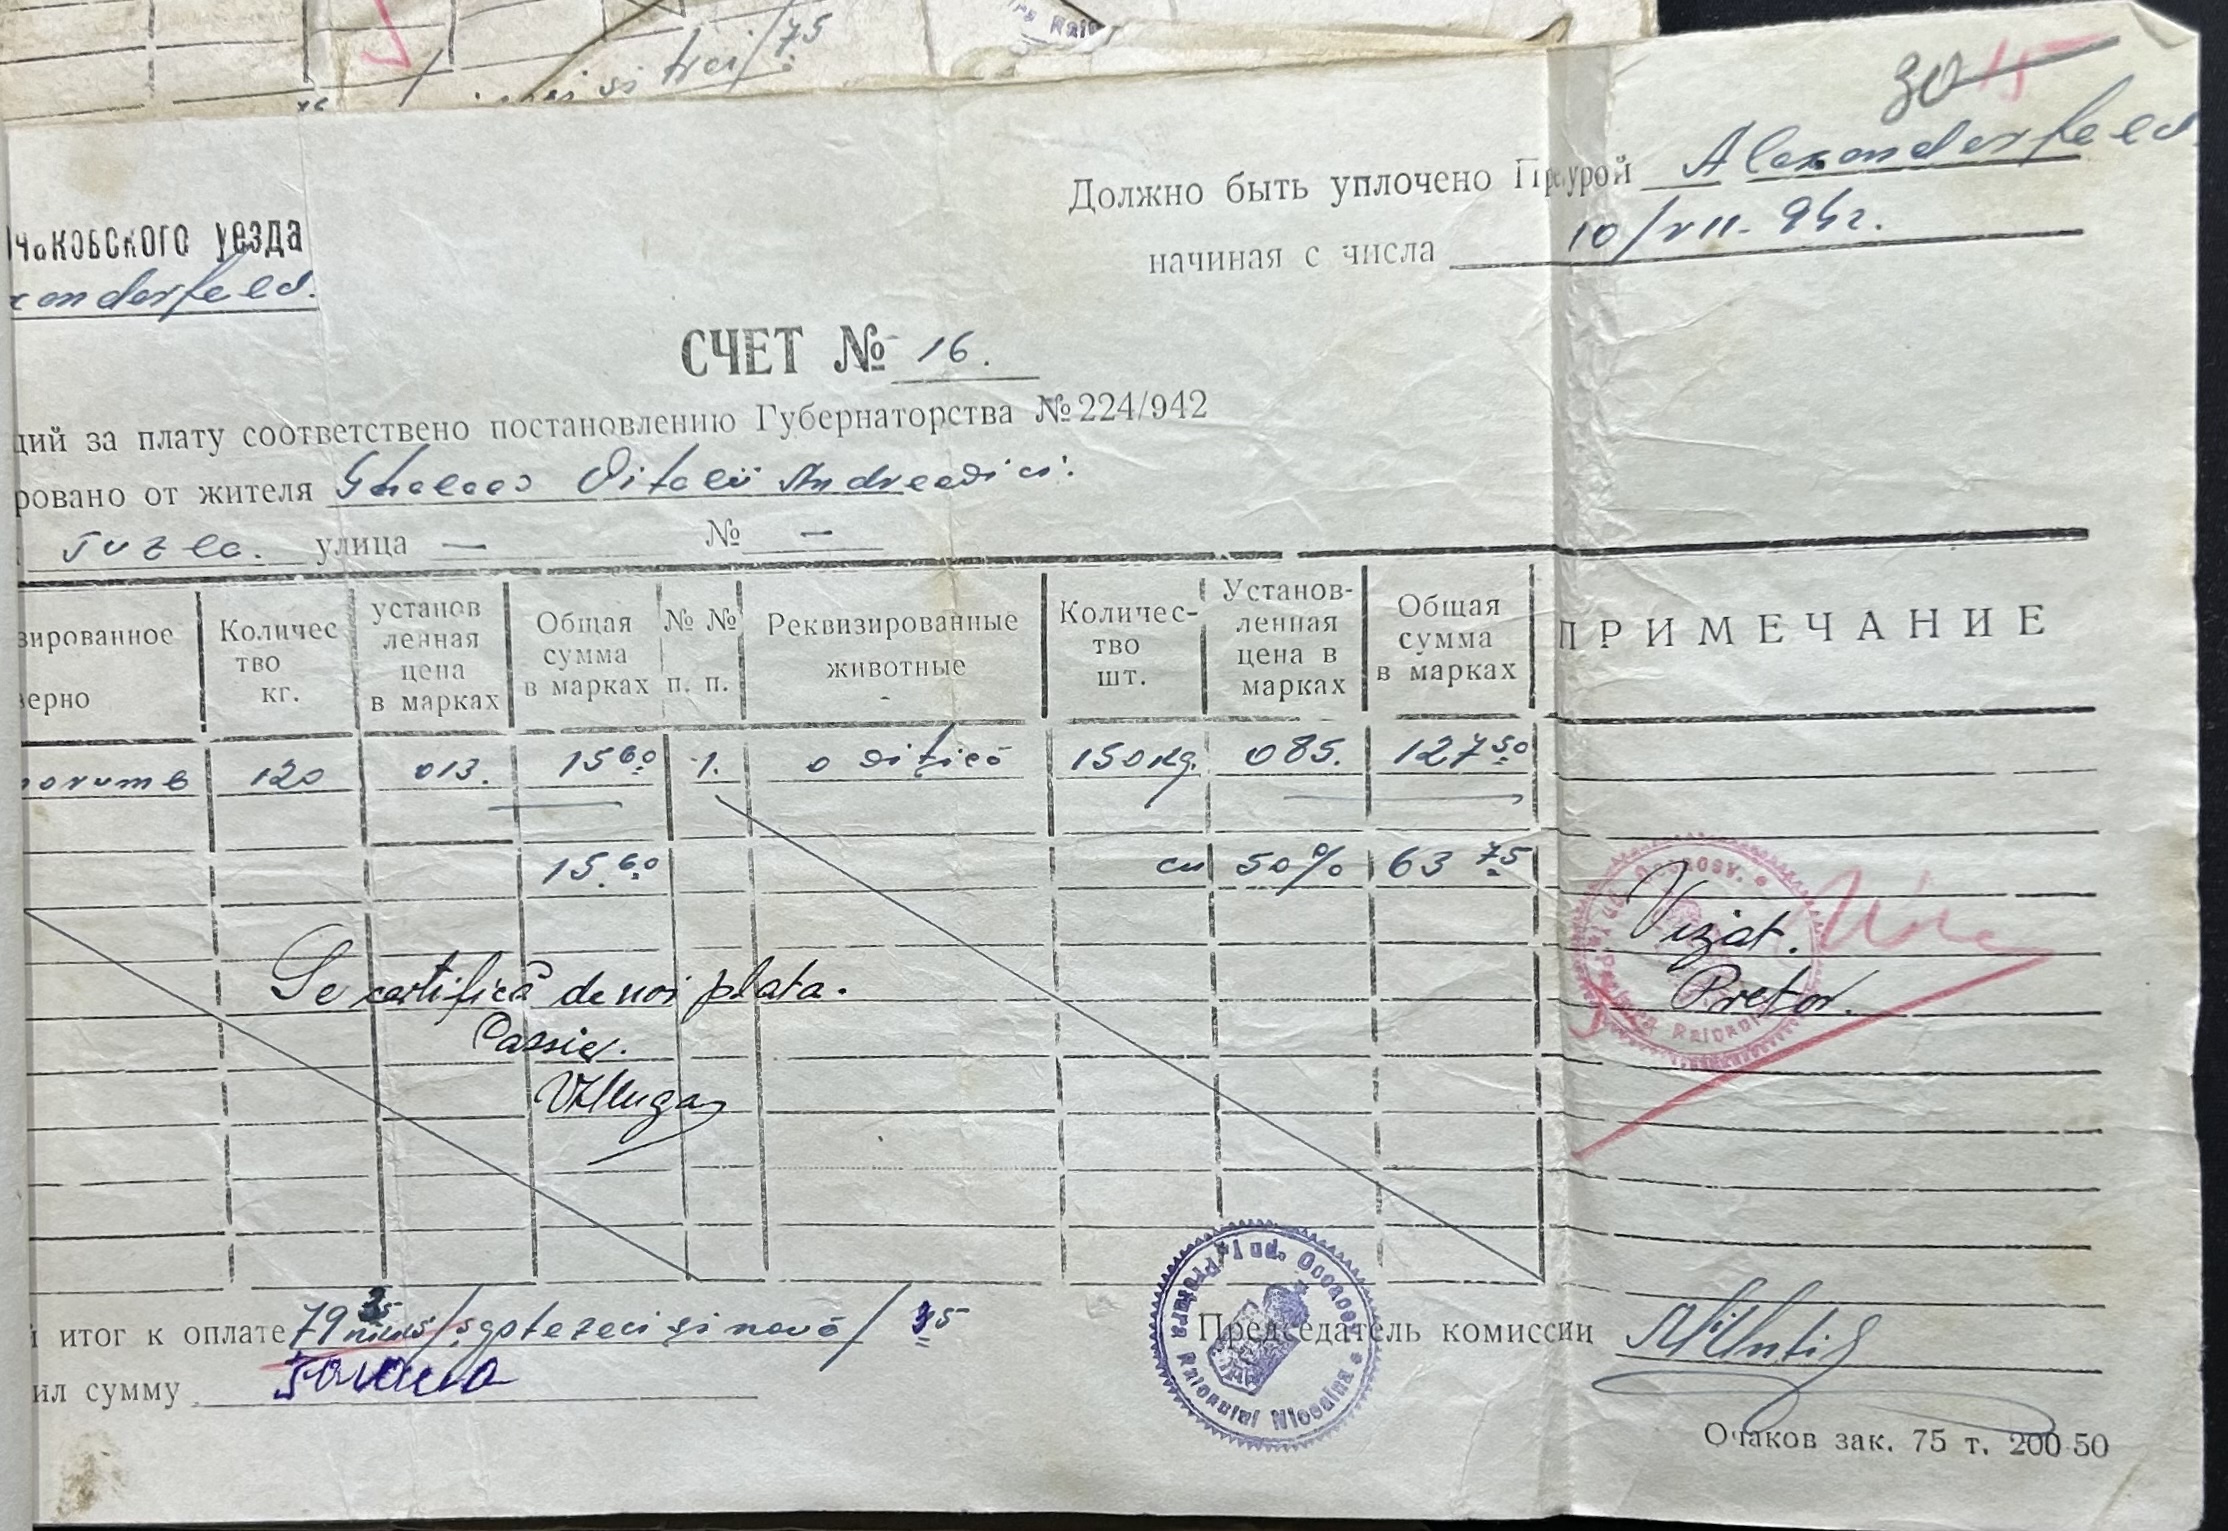 si trei/75
30 15
Должно быть уплочено Претурой Alexanderfeld
начиная с числа 10/VII-94г.
чаковского уезда
xanderfeld.
СЧЕТ № 16.
ций за плату соответствено постановлению Губернаторства №224/942
ровано от жителя Vitalii Andreevici.
Tuzla. улица — № —
зированное
зерно
Количес
тво
кг.
установ
ленная
цена
в марках
Общая
сумма
в марках
№ №
п. п.
Реквизированные
животные
Количес-
тво
шт.
Установ-
ленная
цена в
марках
Общая
сумма
в марках
ПРИМЕЧАНИЕ
porumb 120 013. 15 60 1. o vițică 150 kg. 085. 127 50
15.60 cu 50% 63 75
Se certifică de noi plata.
Cassier.
Vizat.
Pretor.
й итог к оплате 79 35 /șaptezeci și nouă/ 35
ил сумму
Председатель комиссии
Pretura Raionului Nicoaina
Очаков зак. 75 т. 200-50